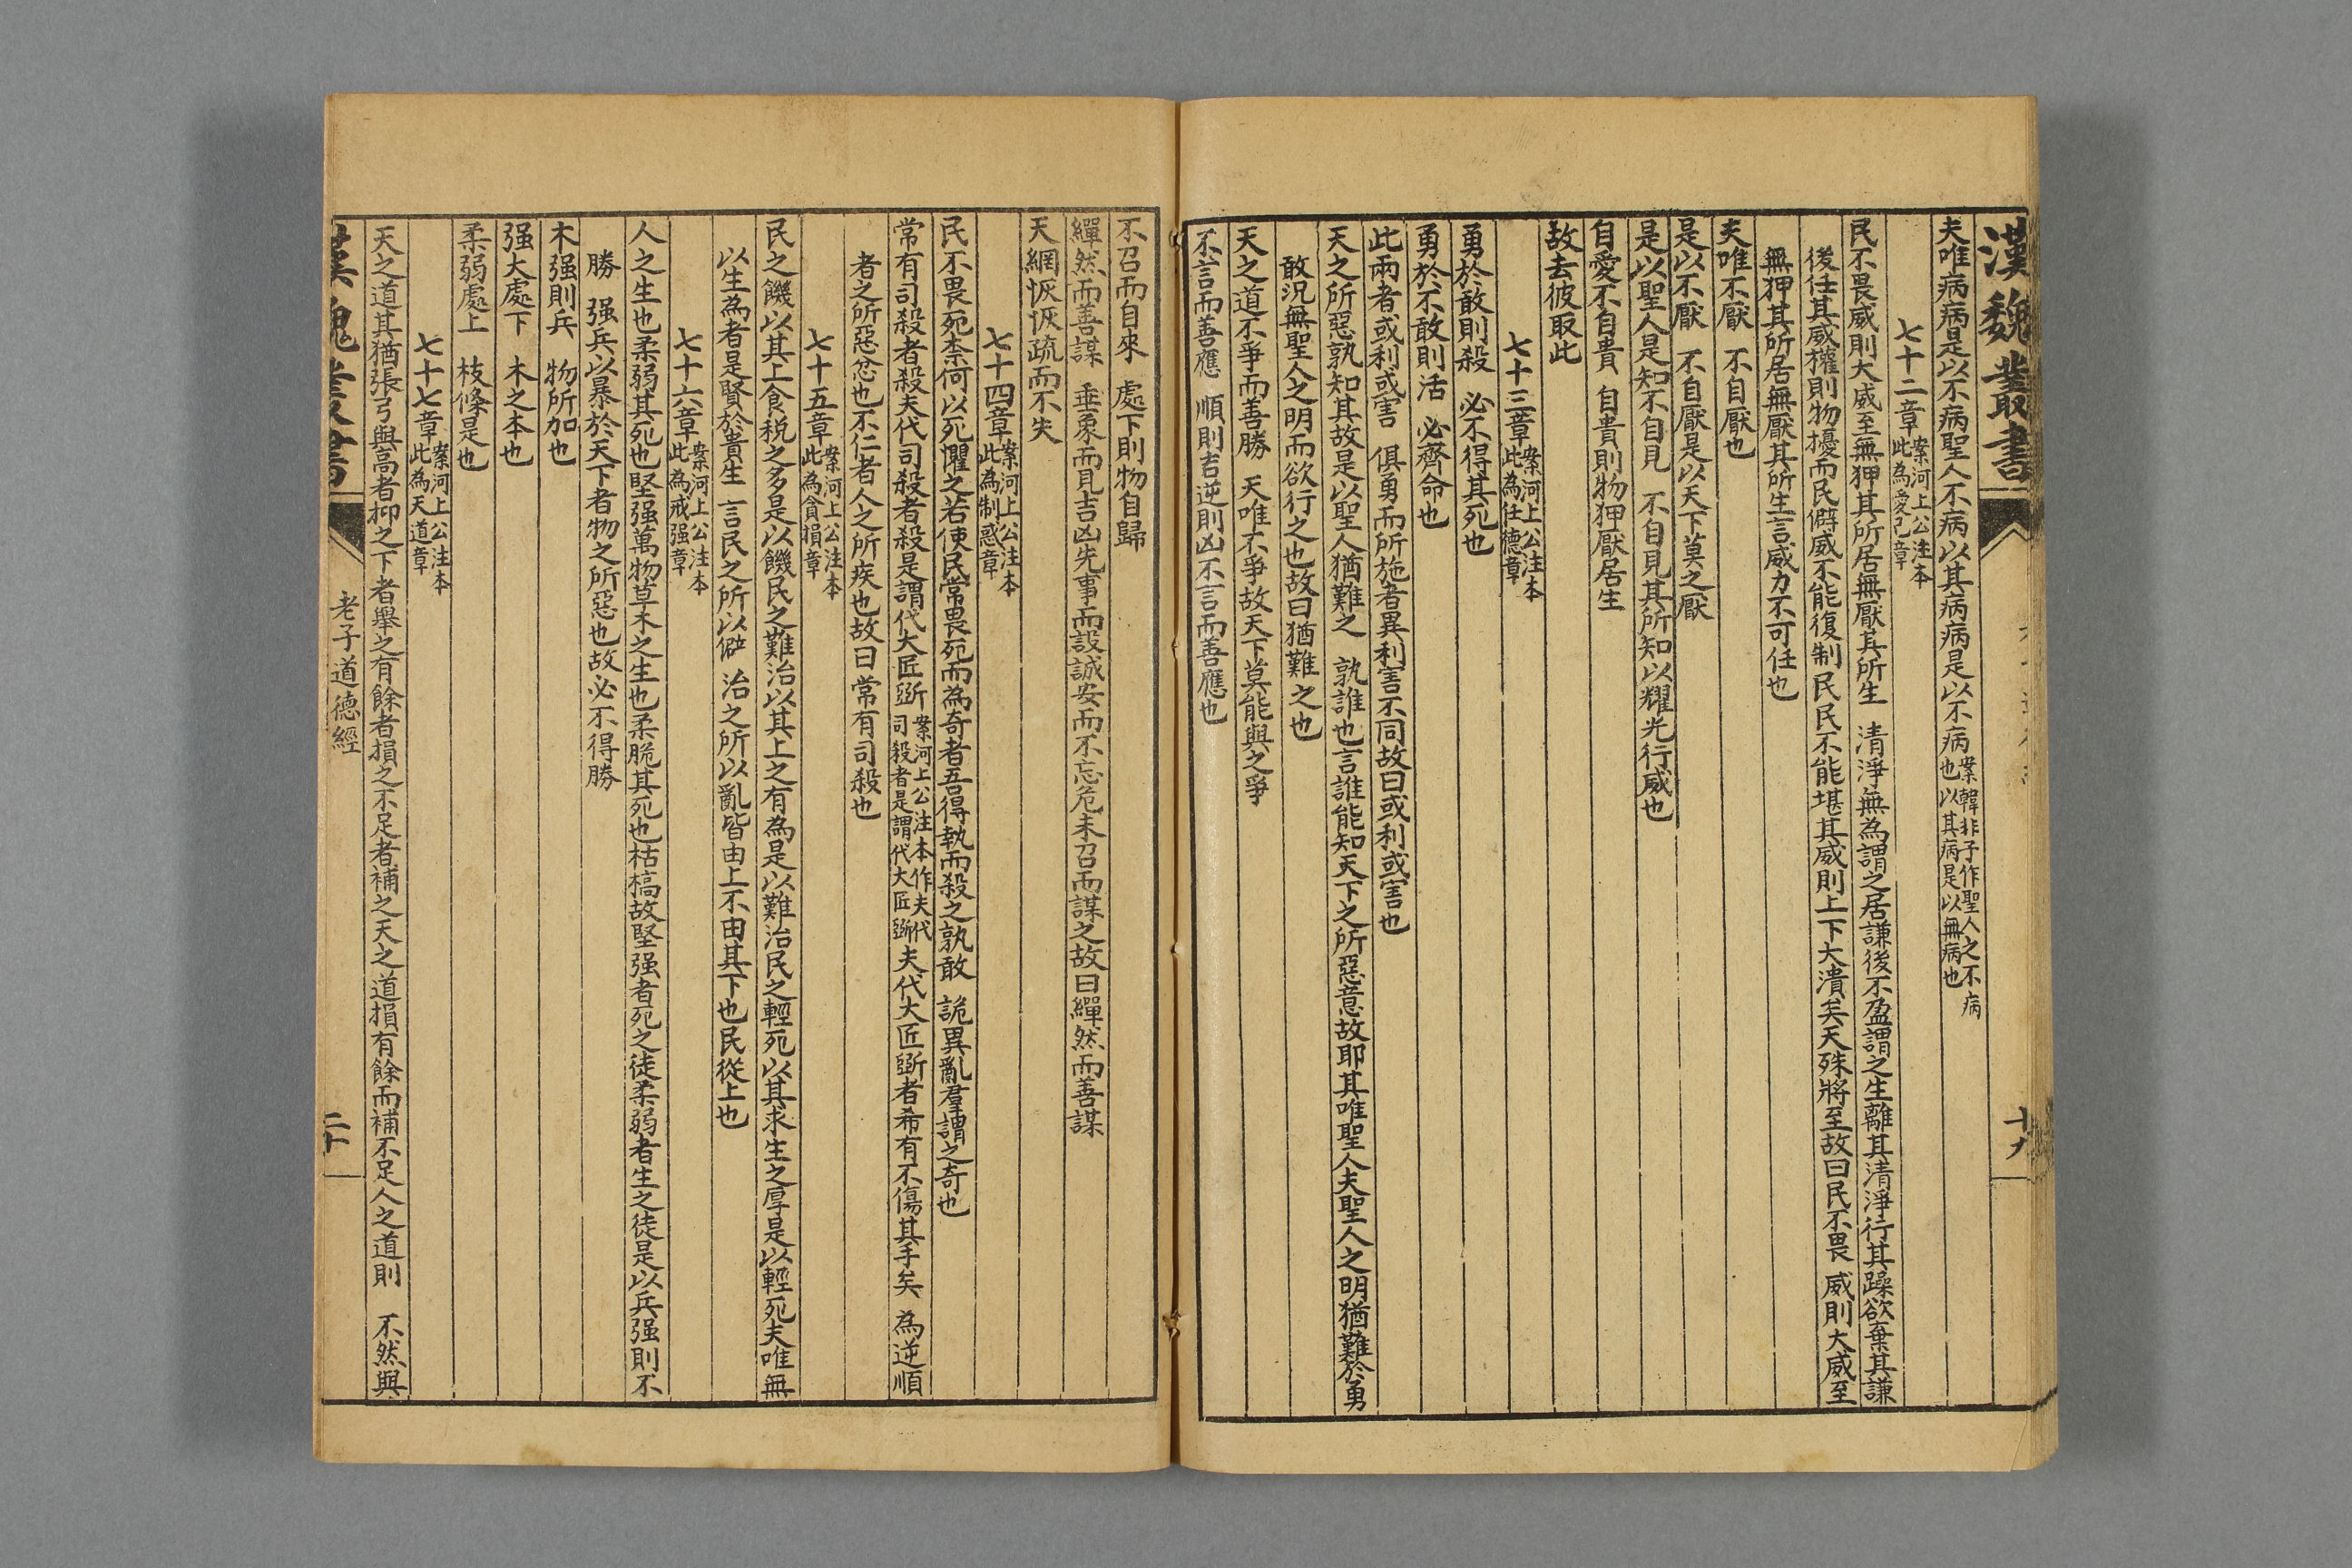 漢魏叢書
十九
夫唯病病是以不病聖人不病以其病病是以不病案韓非子作聖人之不病
也以其病是以無病也
七十二章案河上公注本
此為愛己章
民不畏威則大威至無狎其所居無厭其所生 清淨無為謂之居謙後不盈謂之生離其清淨行其躁欲棄其謙
後任其威權則物擾而民僻威不能復制民民不能堪其威則上下大潰矣天殊將至故曰民不畏威則大威至
無狎其所居無厭其所生言威力不可任也
夫唯不厭 不自厭也
是以不厭 不自厭是以天下莫之厭
是以聖人是知不自見 不自見其所知以耀光行威也
自愛不自貴 自貴則物狎厭居生
故去彼取此
七十三章案河上公注本
此為任德章
勇於敢則殺 必不得其死也
勇於不敢則活 必齊命也
此兩者或利或害 俱勇而所施者異利害不同故曰或利或害也
天之所惡孰知其故是以聖人猶難之 孰誰也言誰能知天下之所惡意故耶其唯聖人夫聖人之明猶難於勇
敢況無聖人之明而欲行之也故曰猶難之也
天之道不爭而善勝 天唯不爭故天下莫能與之爭
不言而善應 順則吉逆則凶不言而善應也
不召而自來 處下則物自歸
繟然而善謀 垂象而見吉凶先事而設誠安而不忘危未召而謀之故曰繟然而善謀
天網恢恢疏而不失
七十四章案河上公注本
此為制惑章
民不畏死柰何以死懼之若使民常畏死而為奇者吾得執而殺之孰敢 詭異亂羣謂之奇也
常有司殺者殺夫代司殺者殺是謂代大匠斵案河上公注本作夫代
司殺者是謂代大匠斵夫代大匠斵者希有不傷其手矣 為逆順
者之所惡忿也不仁者人之所疾也故曰常有司殺也
七十五章案河上公注本
此為貪損章
民之饑以其上食稅之多是以饑民之難治以其上之有為是以難治民之輕死以其求生之厚是以輕死夫唯無
以生為者是賢於貴生 言民之所以僻治之所以亂皆由上不由其下也民從上也
七十六章案河上公注本
此為戒强章
人之生也柔弱其死也堅强萬物草木之生也柔脆其死也枯槁故堅强者死之徒柔弱者生之徒是以兵强則不
勝 强兵以暴於天下者物之所惡也故必不得勝
木强則兵 物所加也
强大處下 木之本也
柔弱處上 枝條是也
七十七章案河上公注本
此為天道章
天之道其猶張弓與高者抑之下者舉之有餘者損之不足者補之天之道損有餘而補不足人之道則 不然與
漢魏叢書
老子道德經
二十